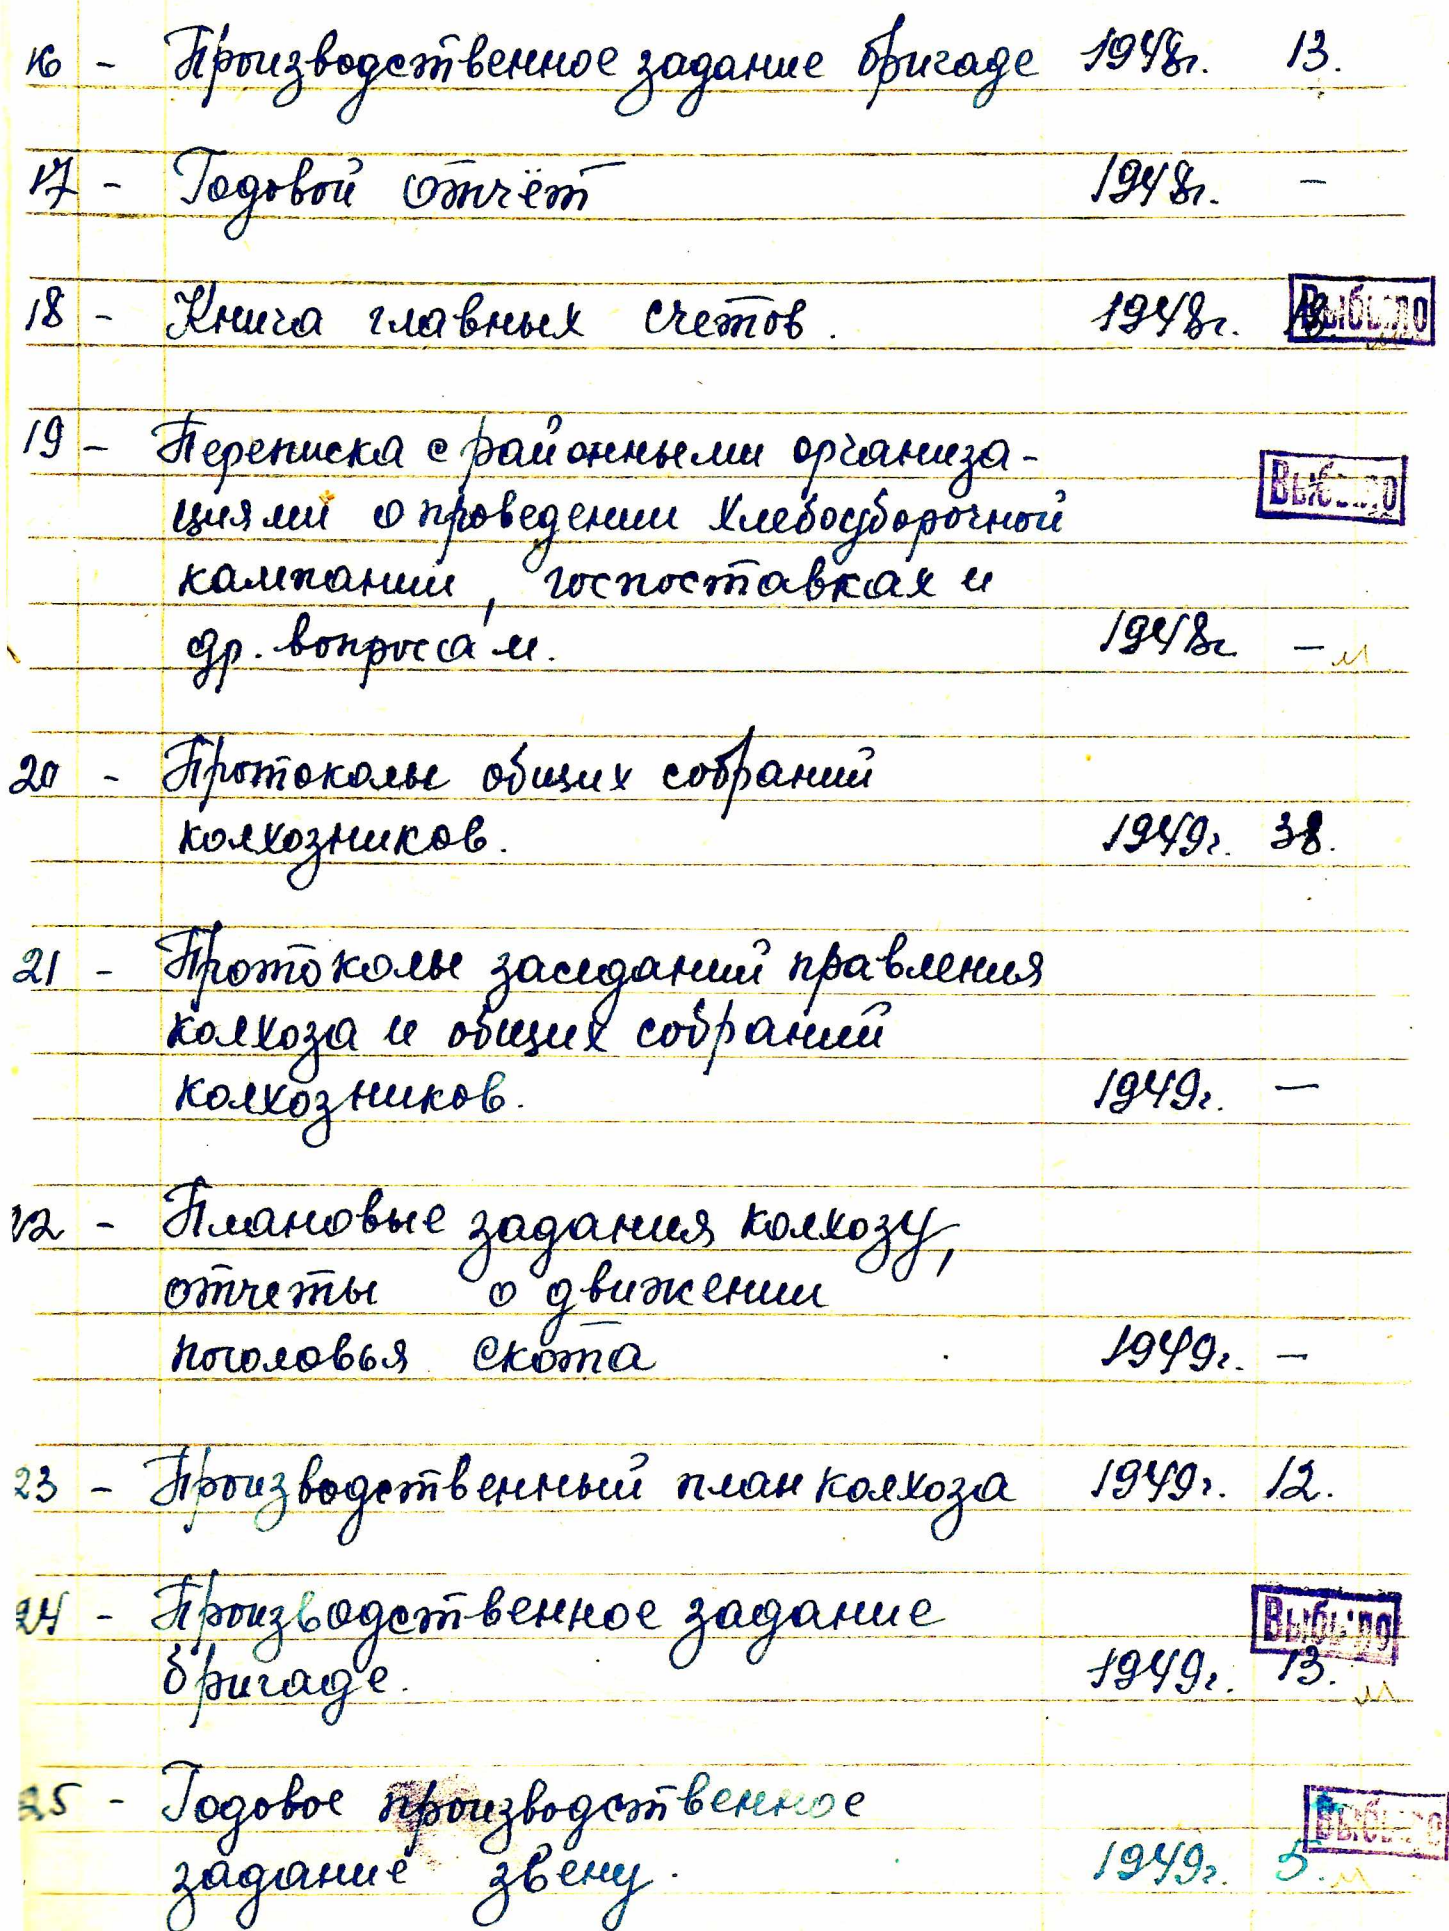 16 - Производственное задание бригаде 1948г. 13.
17 - Годовой отчёт 1948г. -
18 - Книга главных счетов. 1948г. Выбыло
19 - Переписка с районными организа-
Выбыло
циями о проведении хлебоуборочной
кампании, госпоставках и
др. вопросам. 1948г -
20 - Протоколы общих собраний
колхозников. 1949г. 38.
21 - Протоколы заседаний правления
колхоза и общих собраний
колхозников. 1949г. -
22 - Плановые задания колхозу,
отчеты о движении
поголовья скота 1949г. -
23 - Производственный план колхоза 1949г. 12.
24 - Производственное задание Выбыло
бригаде. 1949г. 13.
25 - Годовое производственное Выбыло
задание звену. 1949г. 5.